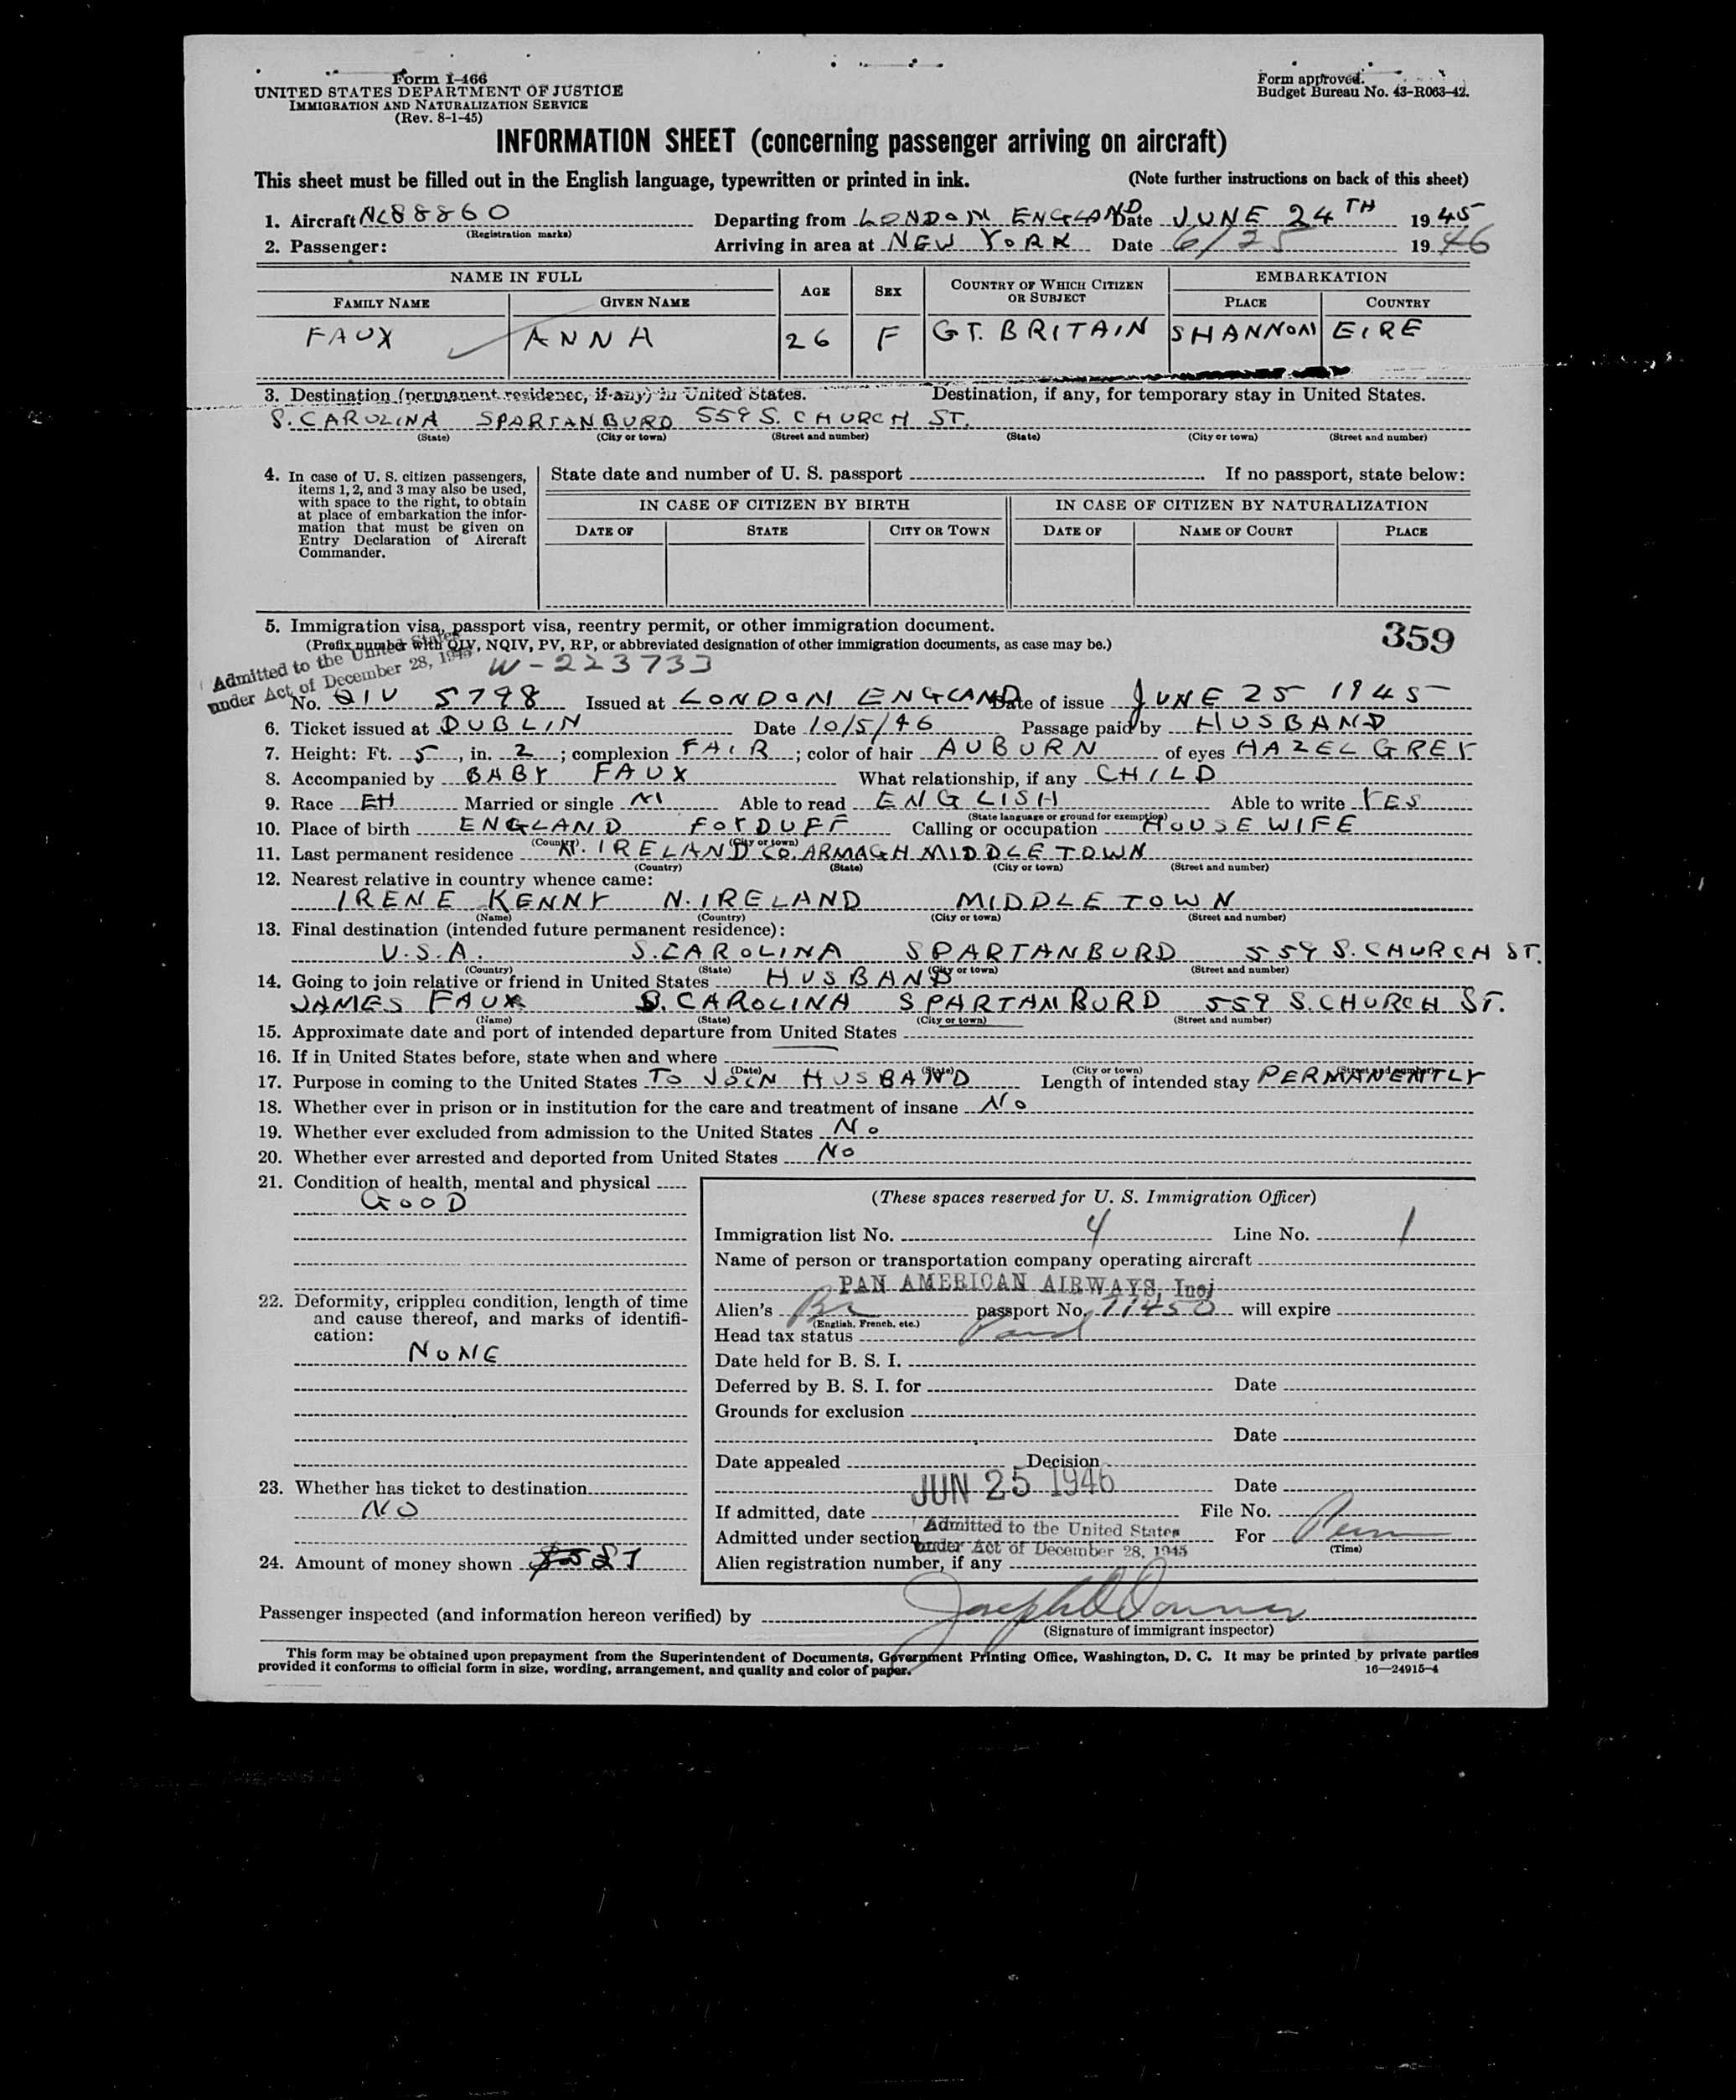 Form I-466
UNITED STATES DEPARTMENT OF JUSTICE
IMMIGRATION AND NATURALIZATION SERVICE
(Rev. 8-1-45)
Form approved.
Budget Bureau No. 43-R063-42.
INFORMATION SHEET (concerning passenger arriving on aircraft)
This sheet must be filled out in the English language, typewritten or printed in ink. (Note further instructions on back of this sheet)
1. Aircraft NC88860 Departing from LONDON ENGLAND Date JUNE 24TH 1945
(Registration marks)
2. Passenger: Arriving in area at NEW YORK Date 6/25 1946
NAME IN FULL AGE SEX COUNTRY OF WHICH CITIZEN OR SUBJECT EMBARKATION
FAMILY NAME GIVEN NAME PLACE COUNTRY
FAUX ANNA 26 F GT. BRITAIN SHANNON EIRE
3. Destination (permanent residence, if any) in United States. Destination, if any, for temporary stay in United States.
S. CAROLINA SPARTANBURD 559 S. CHURCH ST.
(State) (City or town) (Street and number) (State) (City or town) (Street and number)
4. In case of U. S. citizen passengers, items 1, 2, and 3 may also be used, with space to the right, to obtain at place of embarkation the information that must be given on Entry Declaration of Aircraft Commander.
State date and number of U. S. passport If no passport, state below:
IN CASE OF CITIZEN BY BIRTH IN CASE OF CITIZEN BY NATURALIZATION
DATE OF STATE CITY OR TOWN DATE OF NAME OF COURT PLACE
5. Immigration visa, passport visa, reentry permit, or other immigration document. 359
(Prefix number with QIV, NQIV, PV, RP, or abbreviated designation of other immigration documents, as case may be.)
Admitted to the United States
under Act of December 28, 1945
W-223733
No. QIV 5798 Issued at LONDON ENGLAND Date of issue JUNE 25 1945
6. Ticket issued at DUBLIN Date 10/5/46 Passage paid by HUSBAND
7. Height: Ft. 5, in. 2; complexion FAIR; color of hair AUBURN of eyes HAZEL GREY
8. Accompanied by BABY FAUX What relationship, if any CHILD
9. Race EH Married or single M Able to read ENGLISH Able to write YES
(State language or ground for exemption)
10. Place of birth ENGLAND FOYDUFF Calling or occupation HOUSEWIFE
(Country) (City or town)
11. Last permanent residence N. IRELAND CO. ARMAGH MIDDLETOWN
(Country) (State) (City or town) (Street and number)
12. Nearest relative in country whence came:
IRENE KENNY N. IRELAND MIDDLETOWN
(Name) (Country) (City or town) (Street and number)
13. Final destination (intended future permanent residence):
U.S.A. S. CAROLINA SPARTANBURD 559 S. CHURCH ST.
(Country) (State) (City or town) (Street and number)
14. Going to join relative or friend in United States HUSBAND
JAMES FAUX S. CAROLINA SPARTANBURD 559 S. CHURCH ST.
(Name) (State) (City or town) (Street and number)
15. Approximate date and port of intended departure from United States
16. If in United States before, state when and where
(Date) (State) (City or town) (Street and number)
17. Purpose in coming to the United States TO JOIN HUSBAND Length of intended stay PERMANENTLY
18. Whether ever in prison or in institution for the care and treatment of insane No
19. Whether ever excluded from admission to the United States No
20. Whether ever arrested and deported from United States No
21. Condition of health, mental and physical
GOOD
22. Deformity, crippled condition, length of time and cause thereof, and marks of identification:
NONE
23. Whether has ticket to destination
NO
24. Amount of money shown
(These spaces reserved for U. S. Immigration Officer)
Immigration list No. 4 Line No. 1
Name of person or transportation company operating aircraft
PAN AMERICAN AIRWAYS, Inc.
Alien's Br passport No. 11450 will expire
(English, French, etc.)
Head tax status Paid
Date held for B. S. I.
Deferred by B. S. I. for Date
Grounds for exclusion
Date
Date appealed Decision
Date
If admitted, date JUN 25 1946 File No.
Admitted under section Admitted to the United States under Act of December 28, 1945 For Perm
(Time)
Alien registration number, if any
Passenger inspected (and information hereon verified) by
(Signature of immigrant inspector)
This form may be obtained upon prepayment from the Superintendent of Documents, Government Printing Office, Washington, D. C. It may be printed by private parties
provided it conforms to official form in size, wording, arrangement, and quality and color of paper. 16—24915-4